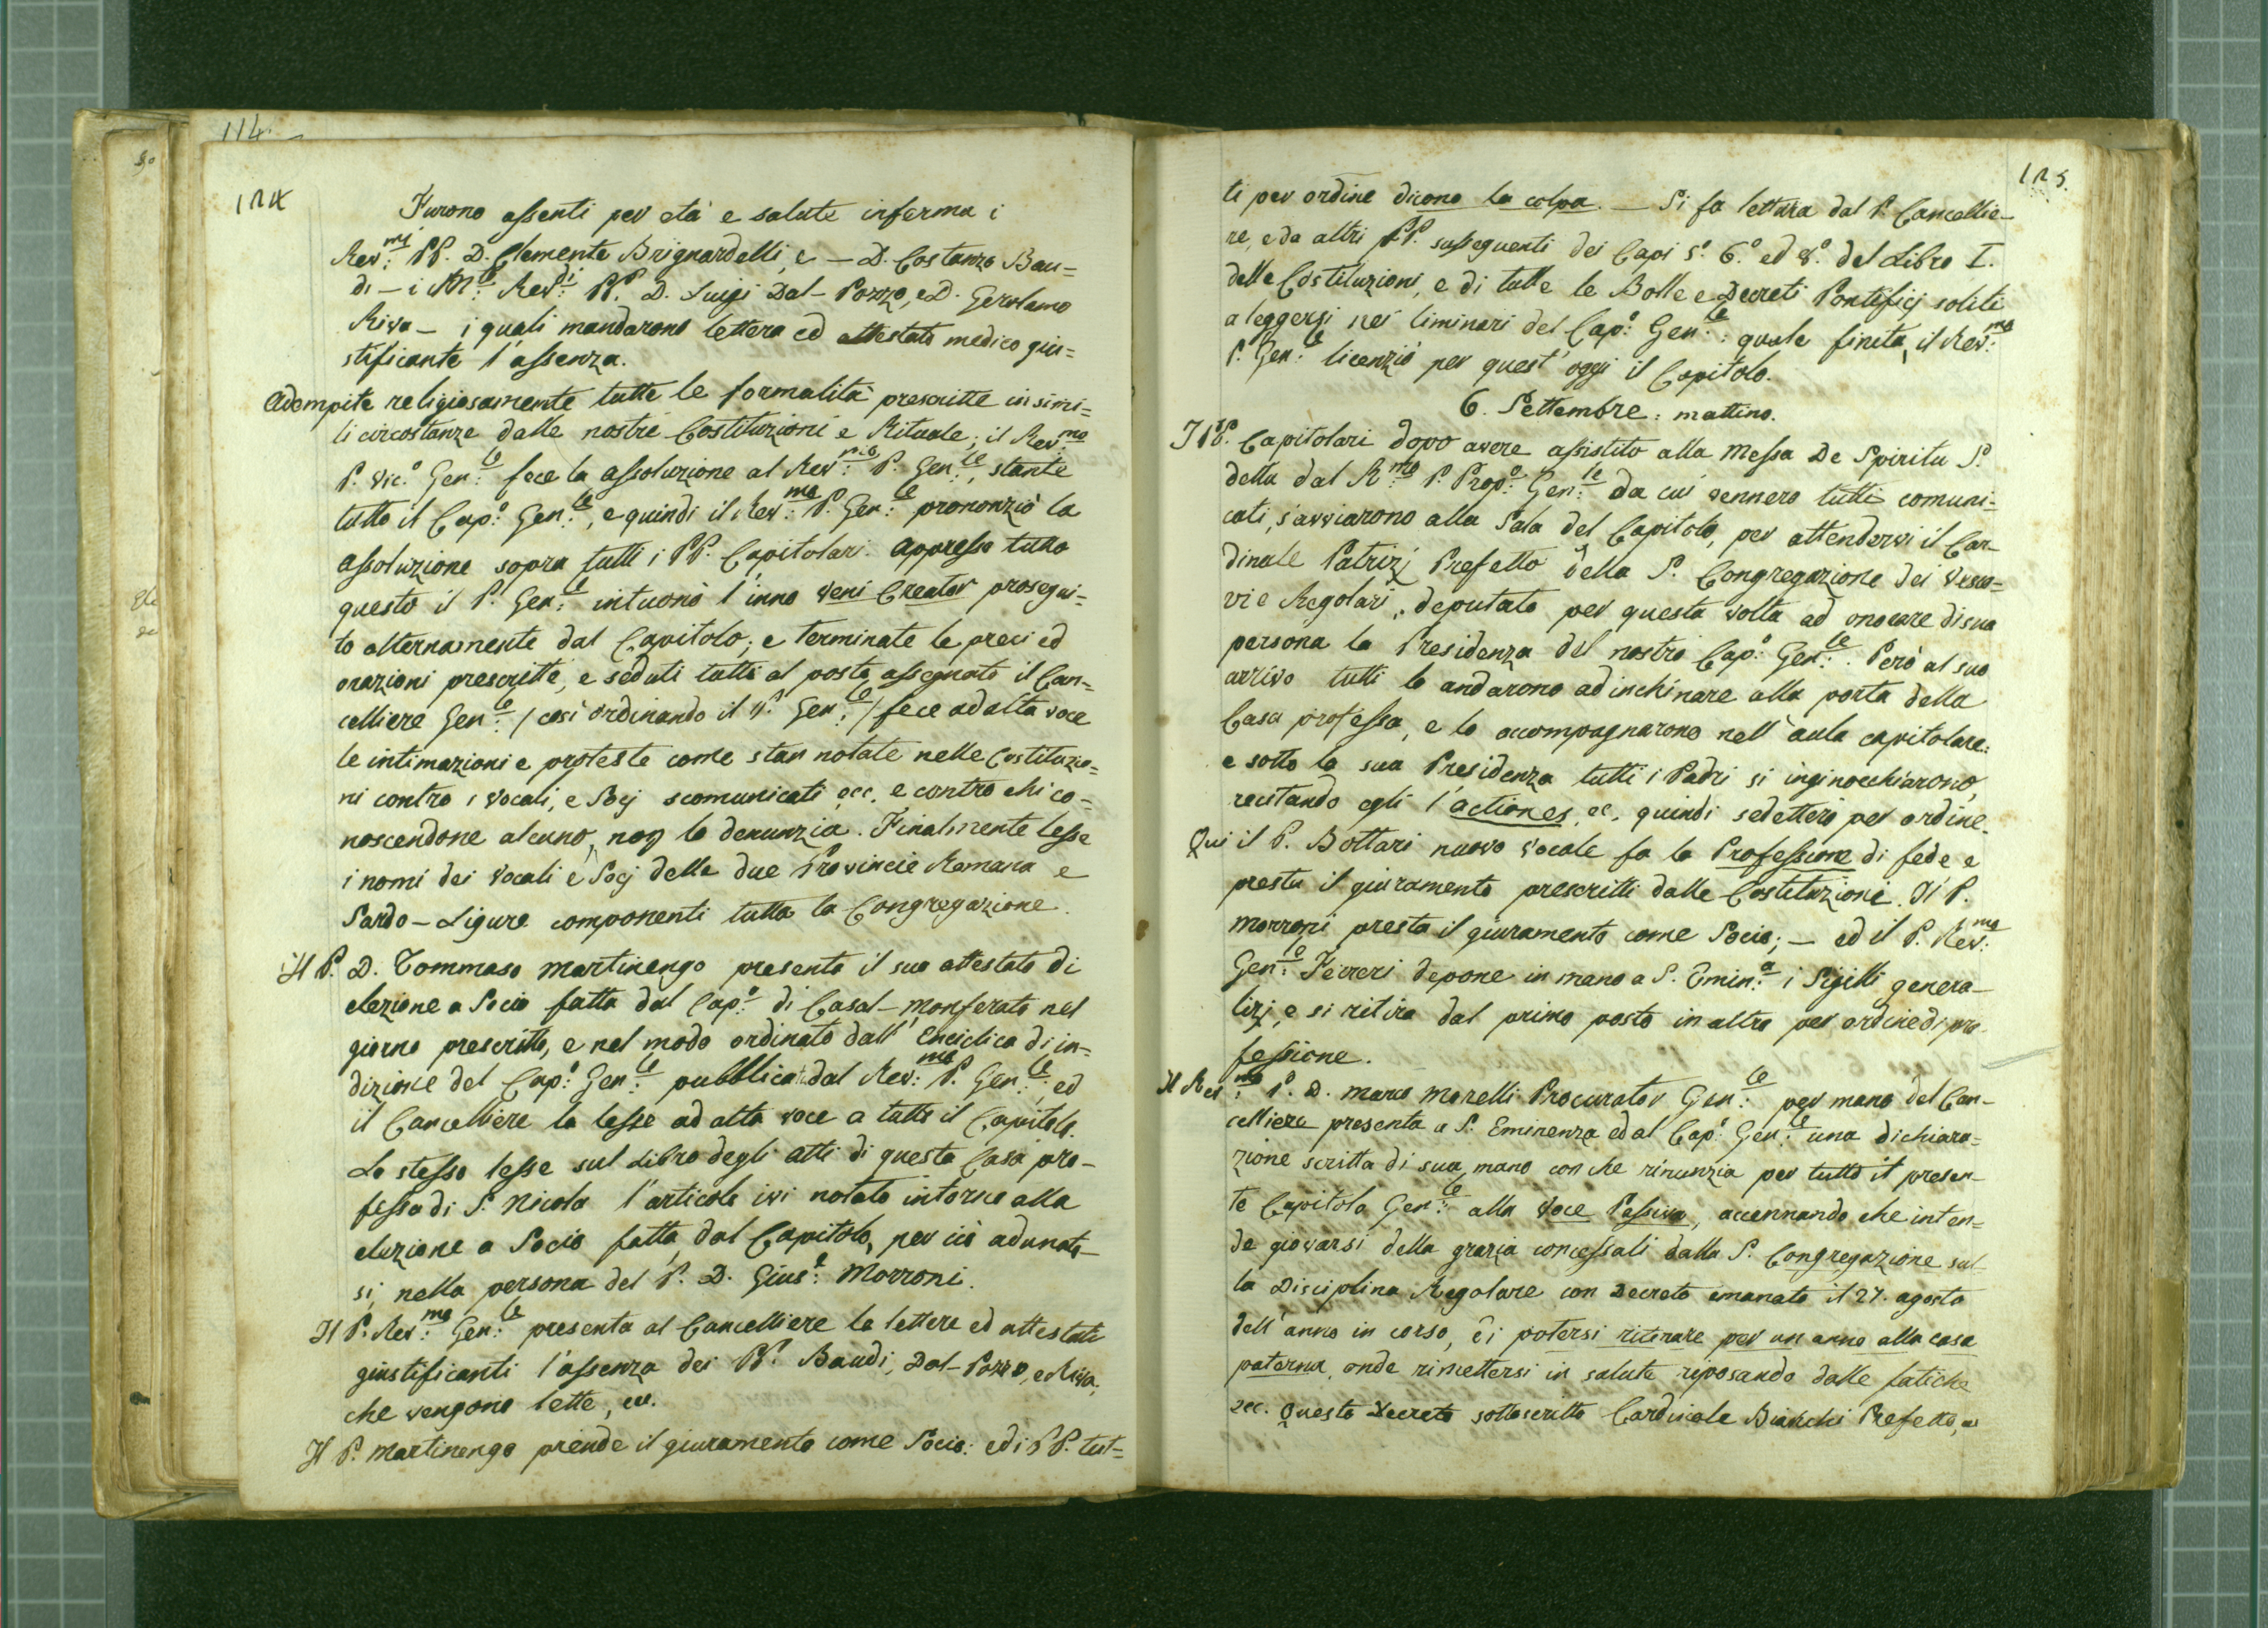 114.
124
Furono assenti per età e salute inferma i
Rev:mi PP. D. Clemente Brignardelli, e — D. Costanzo Bau=
di — i M:to Rev:di PP. D. Luigi Dal-Pozzo, e D. Gerolamo
Riva — i quali mandarono lettera ed attestato medico giu=
stificante l'assenza.
Adempite religiosamente tutte le formalità prescritte in simi=
li circostanze dalle nostre Costituzioni e Rituale; il Rev:mo
P. Vic:o Gen:le fece la assoluzione al Rev:mo P. Gen:le, stante
tutto il Cap:o Gen:le, e quindi il Rev:mo P. Gen:le prononziò la
assoluzione sopra tutti i PP. Capitolari. Appresso tutto
questo il P. Gen:le intuonò l'inno Veni Creator prosegui=
to alternamente dal Capitolo; e terminate le preci ed
orazioni prescritte, e seduti tutti al posto assegnato il Can=
celliere Gen:le / così ordinando il P. Gen:le / fece ad alta voce
le intimazioni e proteste come stan notate nelle Costituzio=
ni contro i vocali, e Socj scomunicati ecc. e contro chi co=
noscendone alcuno, non lo denunzia. Finalmente lesse
i nomi dei Vocali e Socj delle due Provincie Romana e
Sardo-Ligure componenti tutta la Congregazione.
Il P. D. Tommaso Martinengo presenta il suo attestato di
elezione a Socio fatta dal Cap:o di Casal-Monferato nel
giorno prescritto, e nel modo ordinato dall'Enciclica di in=
dizione del Cap:o Gen:le pubblicata dal Rev:mo P. Gen:le: ed
il Cancelliere la lesse ad alta voce a tutto il Capitolo.
Lo stesso lesse sul Libro degli atti di questa Casa pro-
fessa di S. Nicola l'articolo ivi notato intorno alla
elezione a Socio fatta dal Capitolo, per ciò adunato-
si, nella persona del P. D. Gius:e Morroni.
Il P. Rev:mo Gen:le presenta al Cancelliere le lettere ed attestati
giustificanti l'assenza dei PP. Baudi, Dal-Pozzo, e Riva,
che vengono lette, ecc.
Il P. Martinengo prende il giuramento come Socio: ed i PP. tut=
125.
ti per ordine dicono la colpa. — Si fa lettura dal P. Cancellie-
re, e da altri PP. susseguenti dei Capi 5.° 6.° ed 8.° del Libro I.
delle Costituzioni, e di tutte le Bolle e Decreti Pontificj soliti
a leggersi nei liminari del Cap:o Gen:le: quale finita, il Rev:mo
P. Gen:le licenziò per quest'oggi il Capitolo.
6. Settembre: mattino.
I PP. Capitolari dopo avere assistito alla Messa De Spiritu S.
detta dal R:mo P. Prep:o Gen:le da cui vennero tutti comuni=
cati, s'avviarono alla Sala del Capitolo, per attendervi il Car-
dinale Patrizj Prefetto della S. Congregazione dei Vesco=
vi e Regolari, deputato per questa volta ad onorare di sua
persona la Presidenza del nostro Cap:o Gen:le. Però al suo
arrivo tutti lo andarono ad inchinare alla porta della
Casa professa, e lo accompagnarono nell'aula capitolare:
e sotto la sua Presidenza tutti i Padri si inginocchiarono,
recitando egli l'actiones, ec. quindi sedettero per ordine.
Qui il P. Bottari nuovo Vocale fa la Professione di fede e
presta il giuramento prescritti dalle Costituzioni. Il P.
Morroni presta il giuramento come Socio; — ed il P. Rev:mo
Gen:le Ferreri depone in mano a S. Emin:a i Sigilli genera-
lizj, e si ritira dal primo posto in altro per ordine di pro-
fessione.
Il Rev:mo P. D. Marco Morelli Procurator Gen:le per mano del Can-
celliere presenta a S. Eminenza ed al Cap:o Gen:le una dichiara=
zione scritta di sua mano con che rinunzia per tutto il presen-
te Capitolo Gen:le alla Voce Passiva, accennando che inten=
de giovarsi della grazia concessali dalla S. Congregazione sul-
la Disciplina Regolare con Decreto emanato il 27. agosto
dell'anno in corso, di potersi ritirare per un anno alla casa
paterna, onde rimettersi in salute riposando dalle fatiche
ecc. Questo Decreto sottoscritto Cardinale Bianchi Prefetto, e